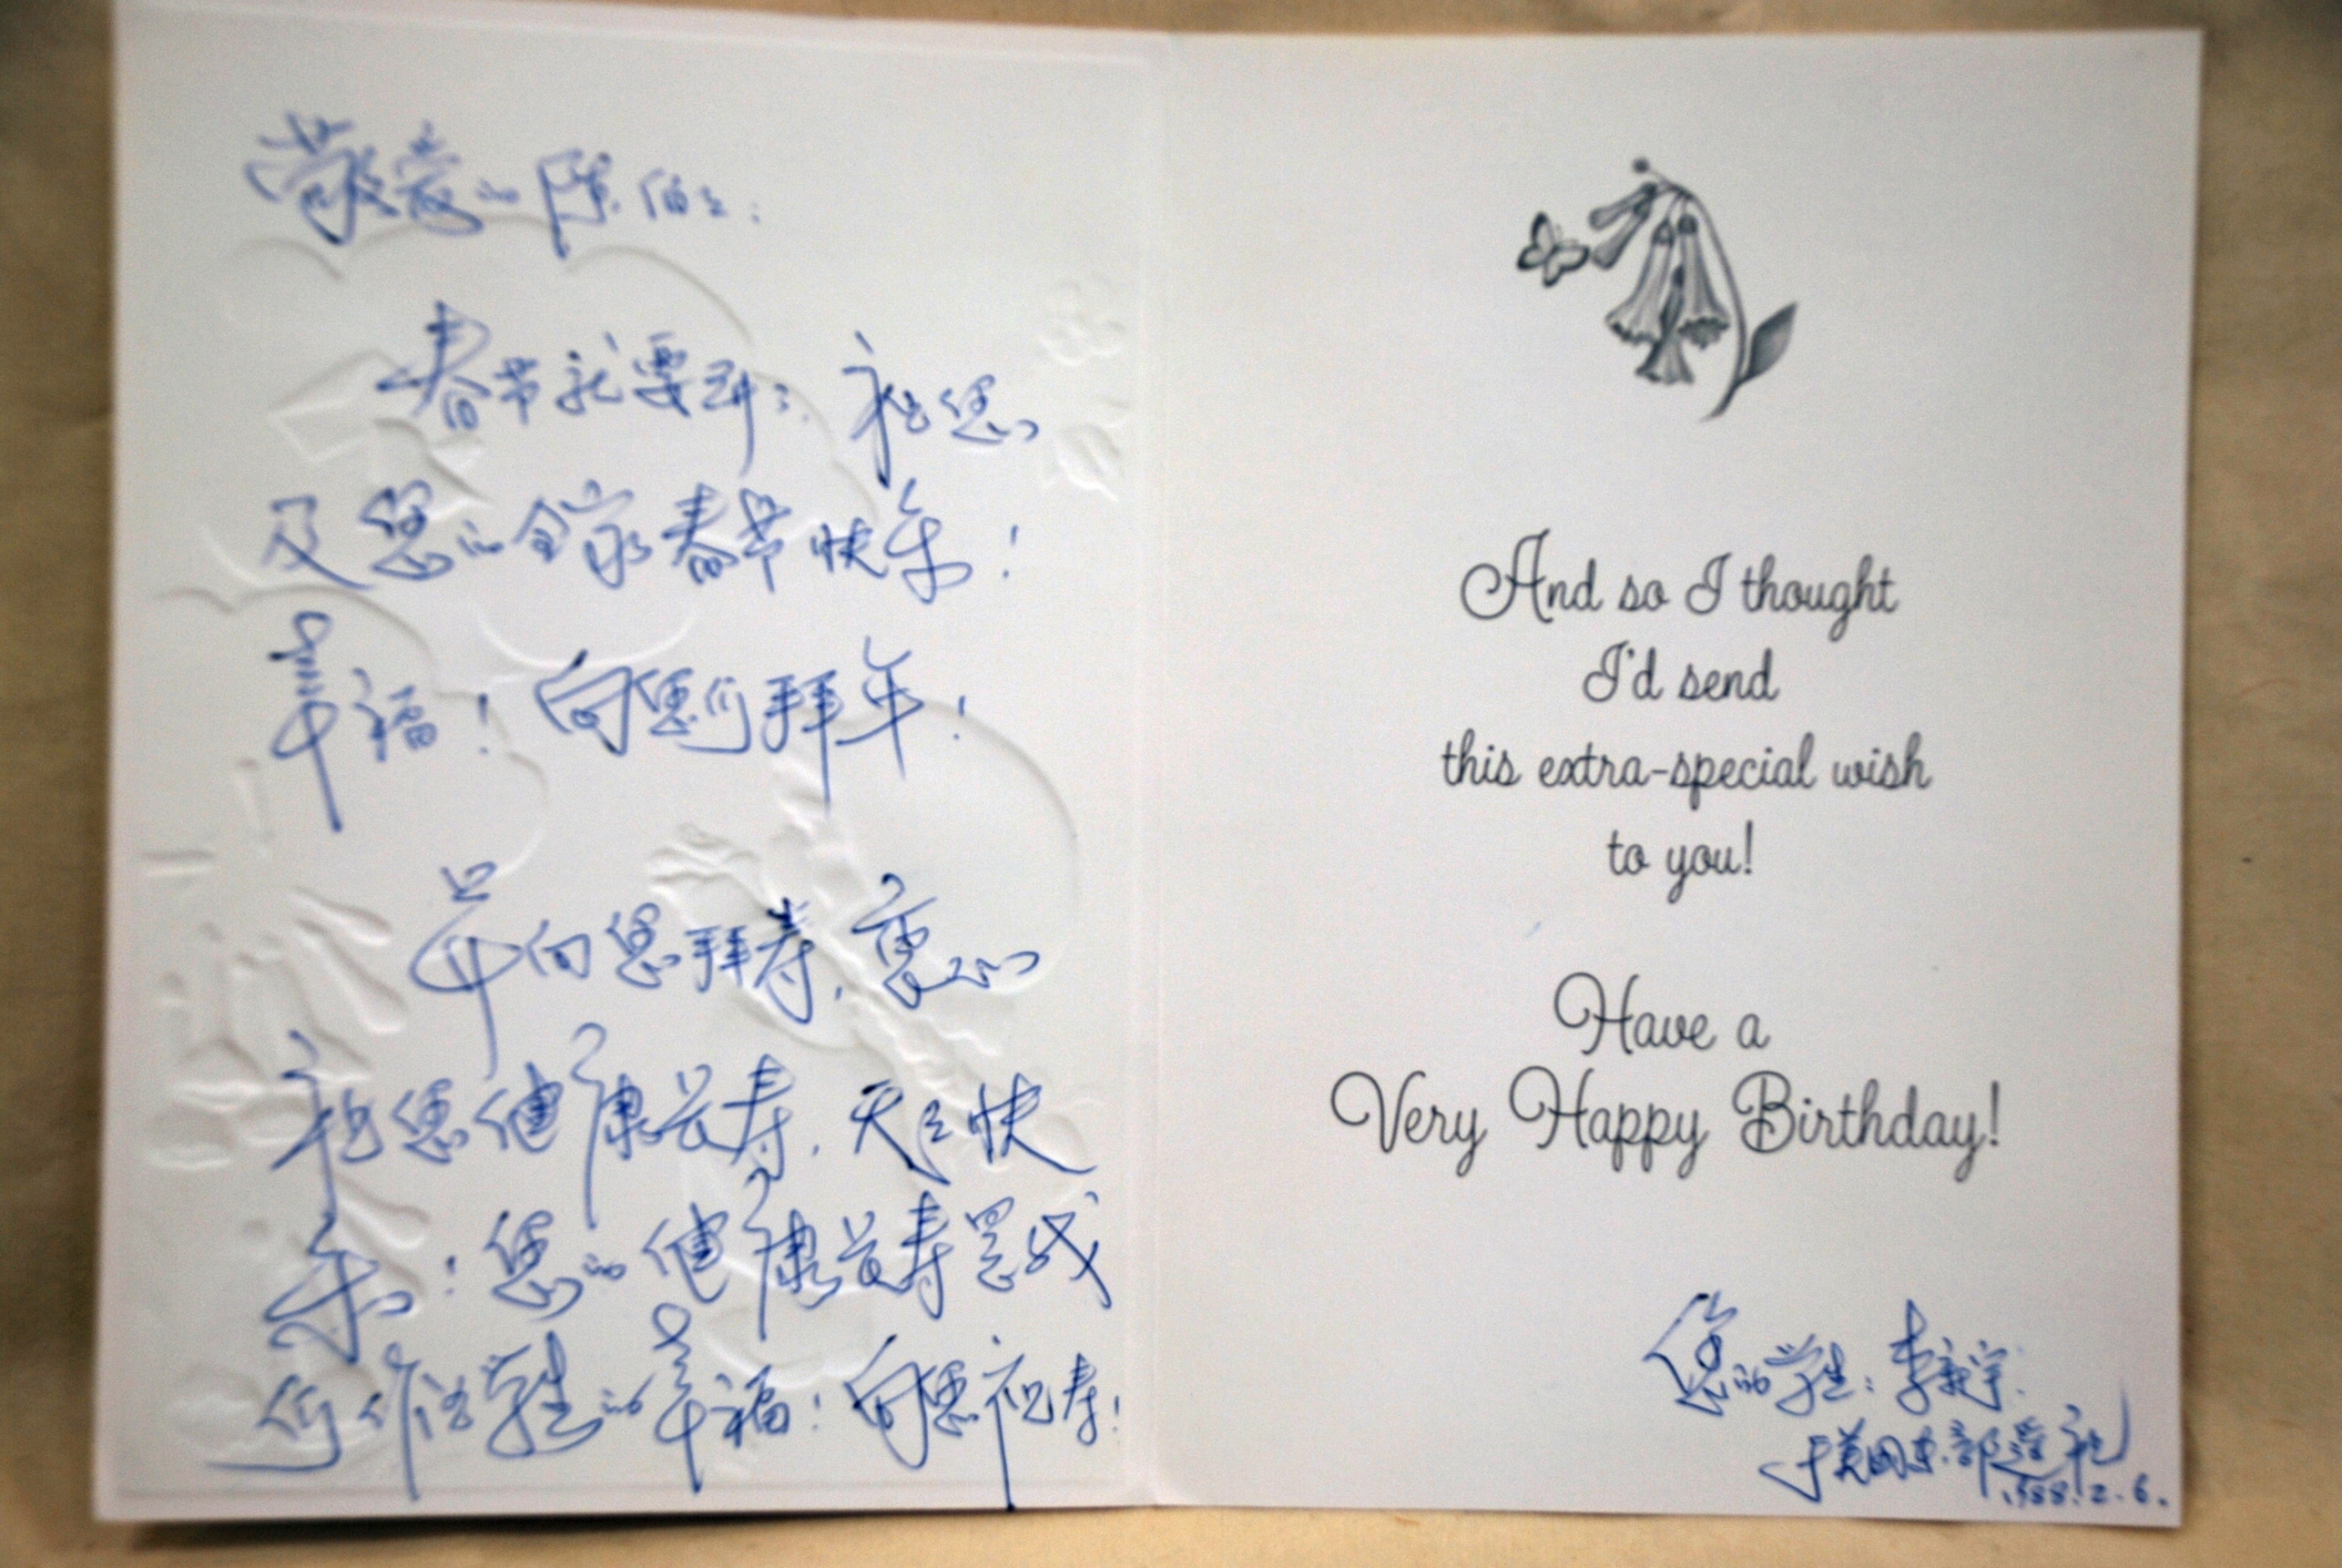 敬爱的陈伯:
春节就要到了, 祝您
及您的全家春节快乐!
幸福! 向您们拜年!
早向您拜寿, 衷心
祝您健康长寿, 天天快
乐! 您的健康长寿是我
们作学生的幸福! 向您祝寿!
And so I thought
I'd send
this extra-special wish
to you!
Have a
Very Happy Birthday!
您的学生: 李新宇
于美国东部遥祝
1988.2.6.